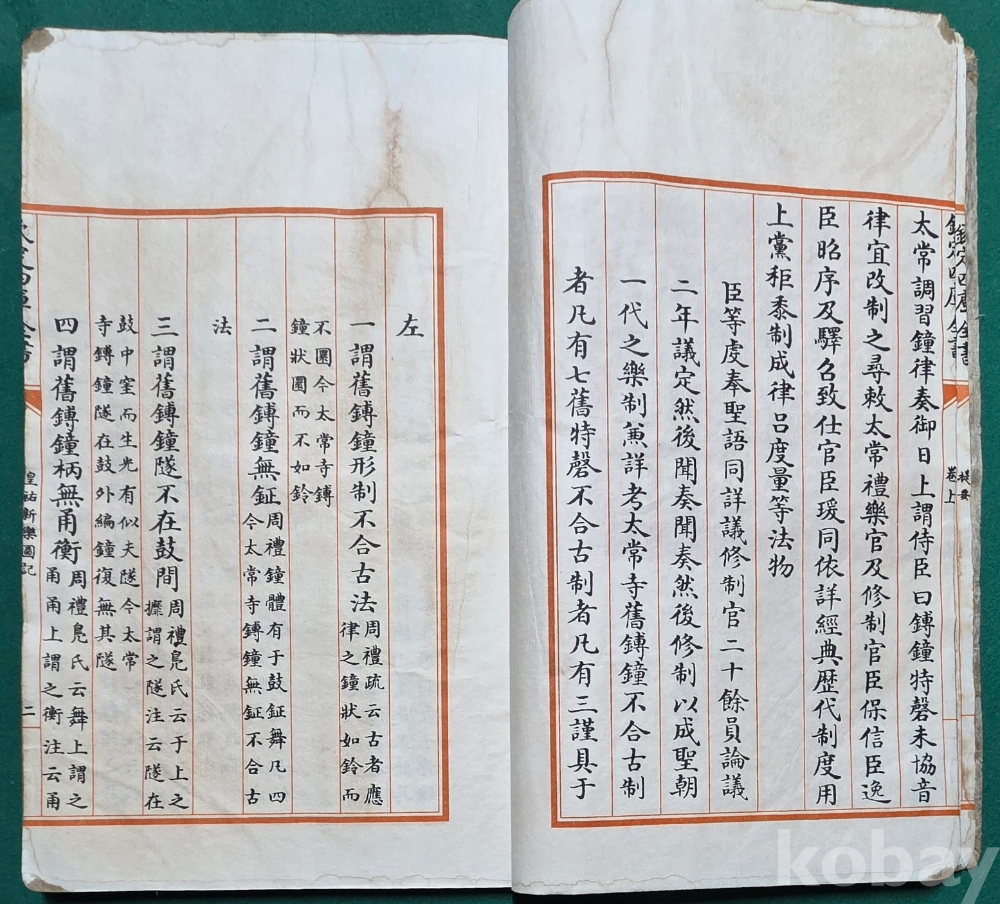 欽定四庫全書
卷上
太常調習鐘律奏御日上謂侍臣曰鎛鐘特磬未協音
律宜改制之尋敕太常禮樂官及修制官臣保信臣逸
臣昭序及驛召致仕官臣瑗同依詳經典歷代制度用
上黨秬黍制成律呂度量等法物
臣等虔奉聖語同詳議修制官二十餘員論議
二年議定然後聞奏聞奏然後修制以成聖朝
一代之樂制兼詳考太常寺舊鎛鐘不合古制
者凡有七舊特磬不合古制者凡有三謹具于
左
一謂舊鎛鐘形制不合古法周禮疏云古者應
律之鐘狀如鈴而
不圜今太常寺鎛
鐘狀圜而不如鈴
二謂舊鎛鐘無鉦周禮鐘體有于鼓鉦舞凡四
今太常寺鎛鐘無鉦不合古
法
三謂舊鎛鐘隧不在鼓間周禮鳧氏云于上之
攠謂之隧注云隧在
鼓中窐而生光有似夫隧今太常
寺鎛鐘隧在鼓外編鐘復無其隧
四謂舊鎛鐘柄無甬衡周禮鳧氏云舞上謂之
甬甬上謂之衡注云甬
欽定四庫全書
皇祐新樂圖記
二
kobay